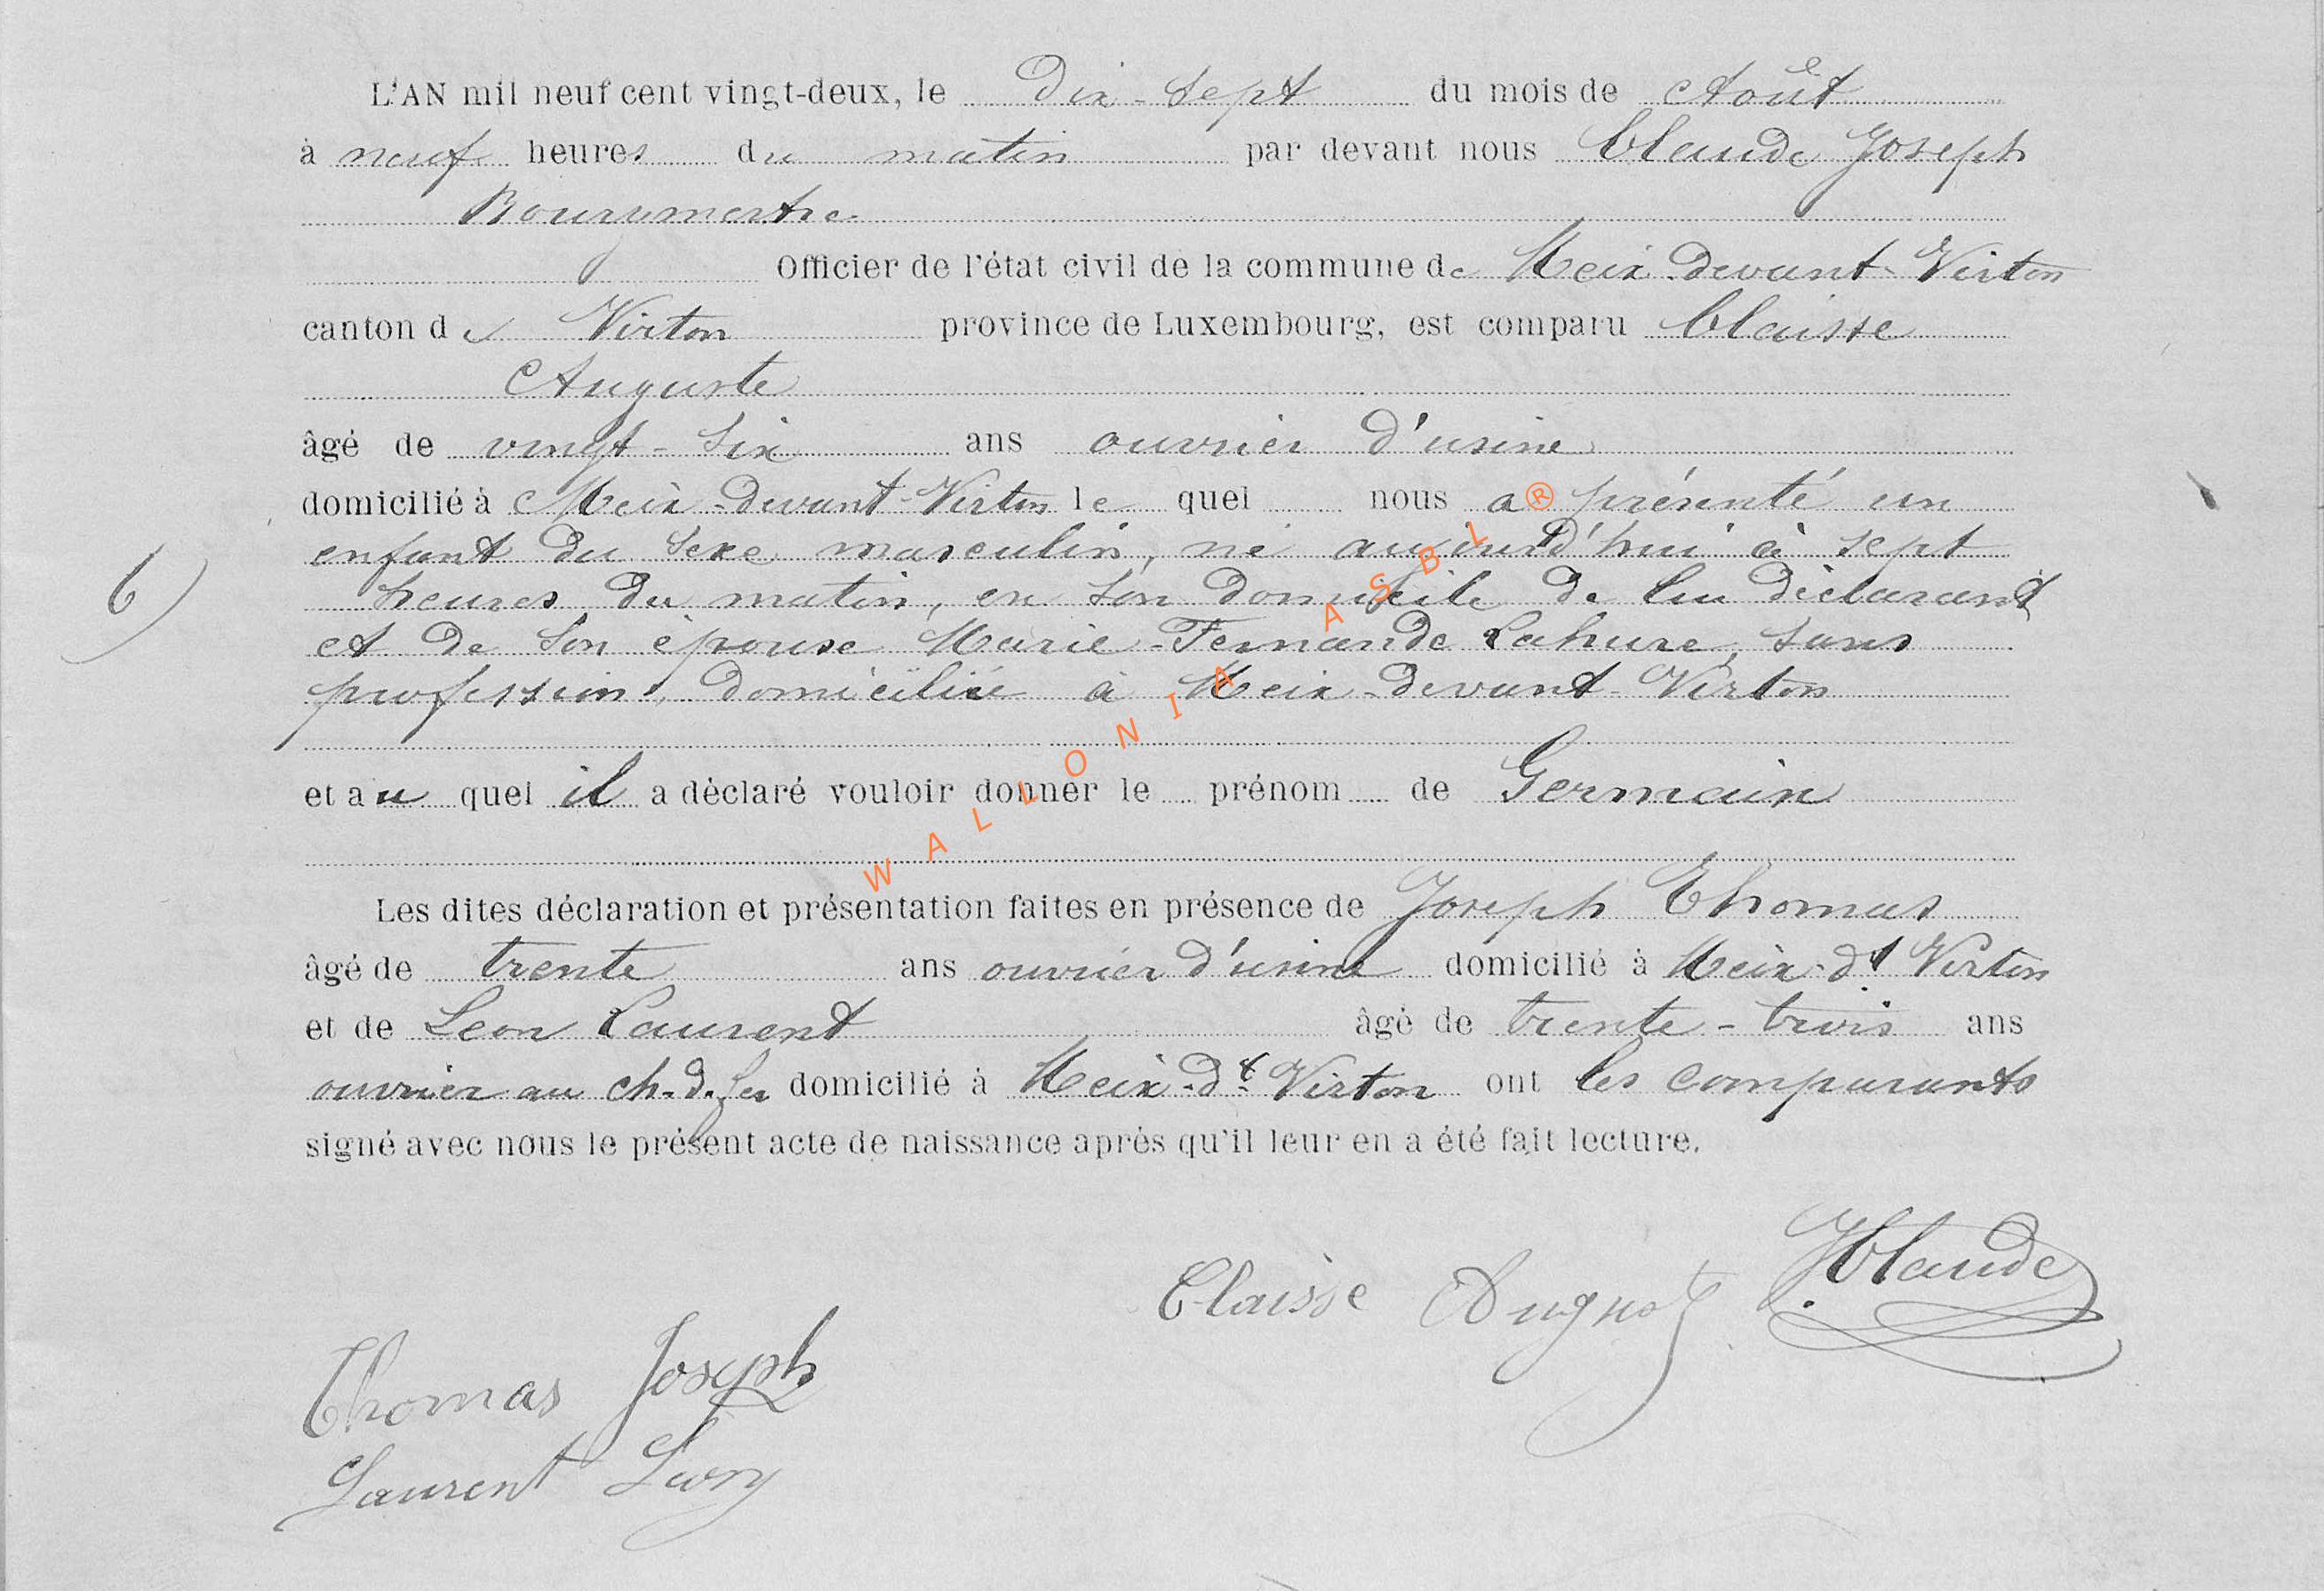 L'AN mil neuf cent vingt-deux, le Dix-sept du mois de Août
à neuf heures du matin par devant nous Claude Joseph
Bourgmestre
Officier de l'état civil de la commune de Meix-devant-Virton
canton de Virton province de Luxembourg, est comparu Claisse
Auguste
âgé de vingt-six ans ouvrier d'usine
domicilié à Meix-devant-Virton le quel nous a présenté un
enfant du sexe masculin, né aujourd'hui à sept
heures du matin, en son domicile de lui déclarant
et de son épouse Marie-Fernande Lahure, sans
profession, domiciliée à Meix-devant-Virton
et au quel il a déclaré vouloir donner le prénom de Germain
Les dites déclaration et présentation faites en présence de Joseph Thomas
âgé de trente ans ouvrier d'usine domicilié à Meix-dt Virton
et de Leon Laurent âgé de trente-trois ans
ouvrier au ch. d. fer domicilié à Meix-dt Virton ont les comparants
signé avec nous le présent acte de naissance après qu'il leur en a été fait lecture.
6)
JClaude
Claisse August
Thomas Joseph
Laurent Léon
WALLONIA ASBL ®